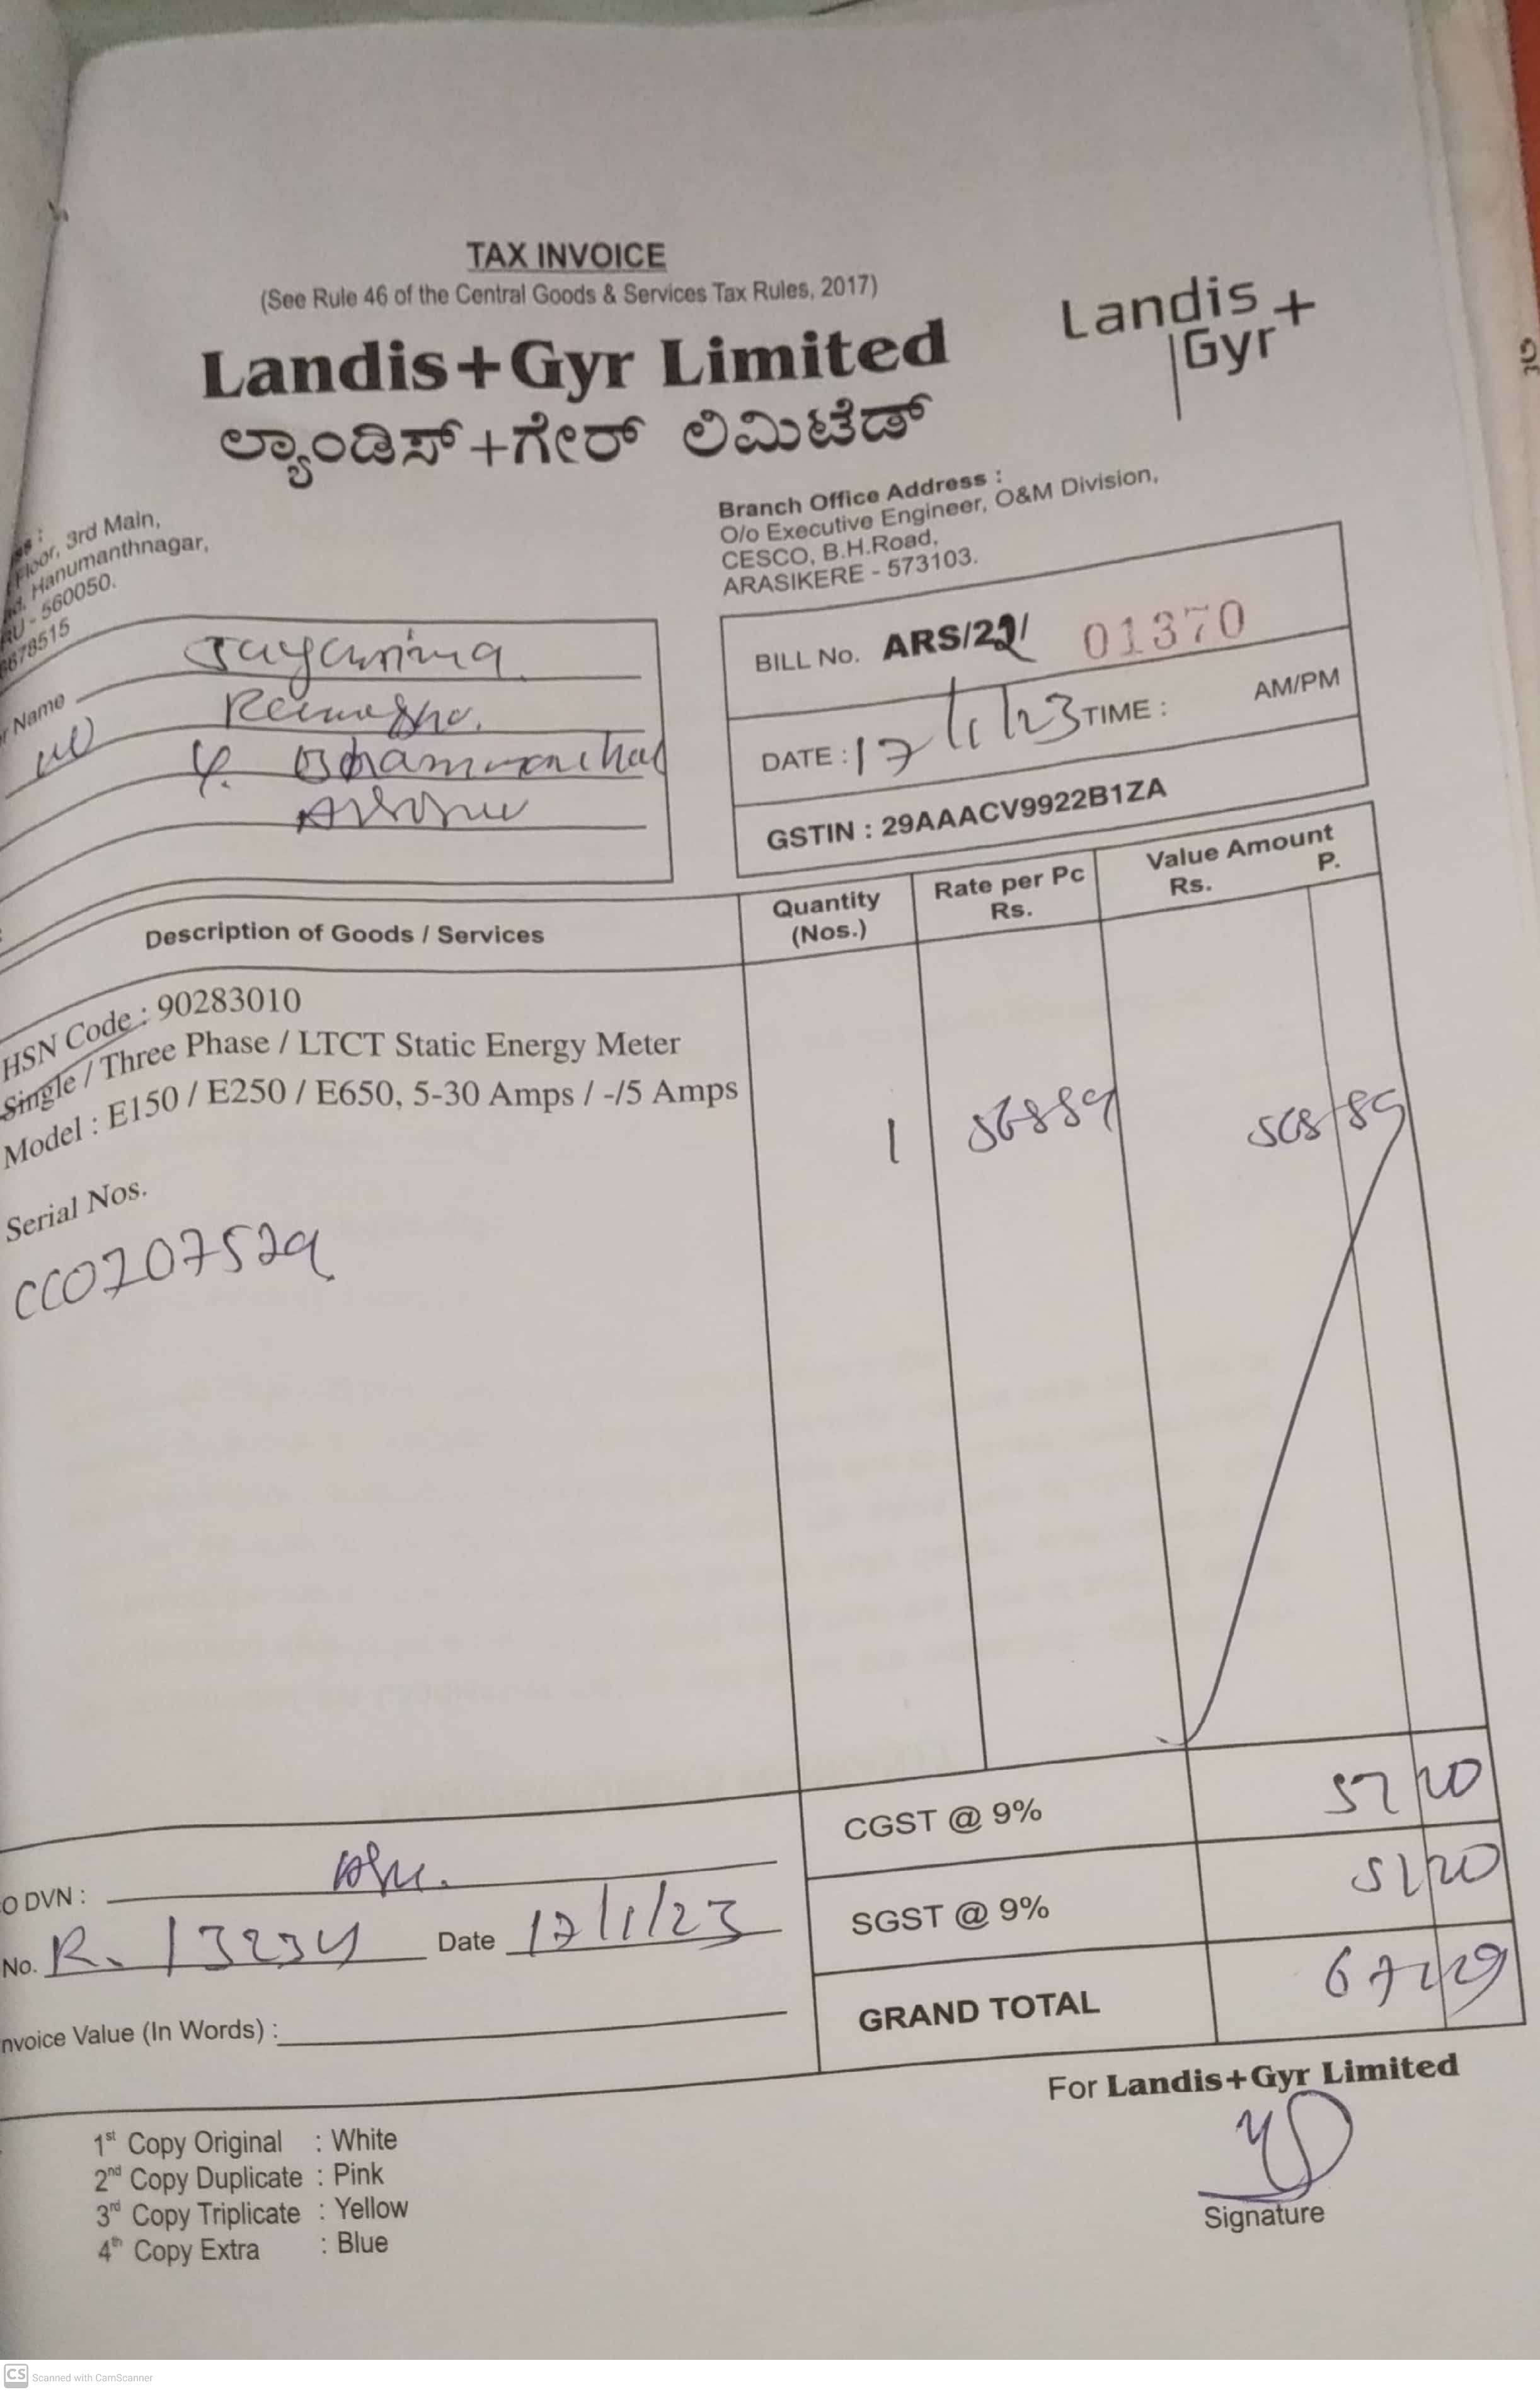 TAX INVOICE
(See Rule 46 of the Central Goods & Services Tax Rules, 2017)
Landis+Gyr Limited
Landis+
Gyr
ಲ್ಯಾಂಡಿಸ್+ಗೇರ್ ಲಿಮಿಟೆಡ್
Floor, 3rd Main,
Hanumanthnagar,
560050.
678515
Branch Office Address :
O/o Executive Engineer, O&M Division,
CESCO, B.H.Road,
ARASIKERE - 573103.
Name Jayamma
BILL No. ARS/22/ 01370
DATE : 17/1/23 TIME : AM/PM
GSTIN : 29AAACV9922B1ZA
Description of Goods / Services
Quantity (Nos.)
Rate per Pc Rs.
Value Amount Rs. P.
HSN Code : 90283010
Single / Three Phase / LTCT Static Energy Meter
Model : E150 / E250 / E650, 5-30 Amps / -/5 Amps
1 56889 568 89
Serial Nos.
CC0207529
CGST @ 9%
SGST @ 9% 51 20
GRAND TOTAL
O DVN :
No. R. 13234 Date 17/1/23
nvoice Value (In Words) :
For Landis+Gyr Limited
Signature
1st Copy Original : White
2nd Copy Duplicate : Pink
3rd Copy Triplicate : Yellow
4th Copy Extra : Blue
CS Scanned with CamScanner